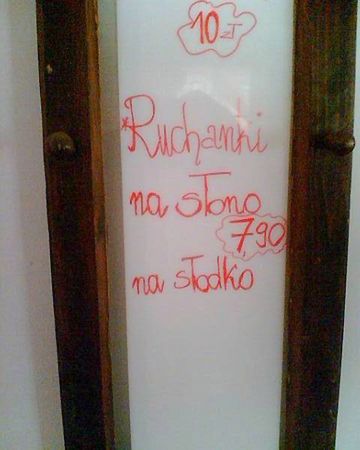 10 zł
*Ruchanki
na słono
7,90
na słodko